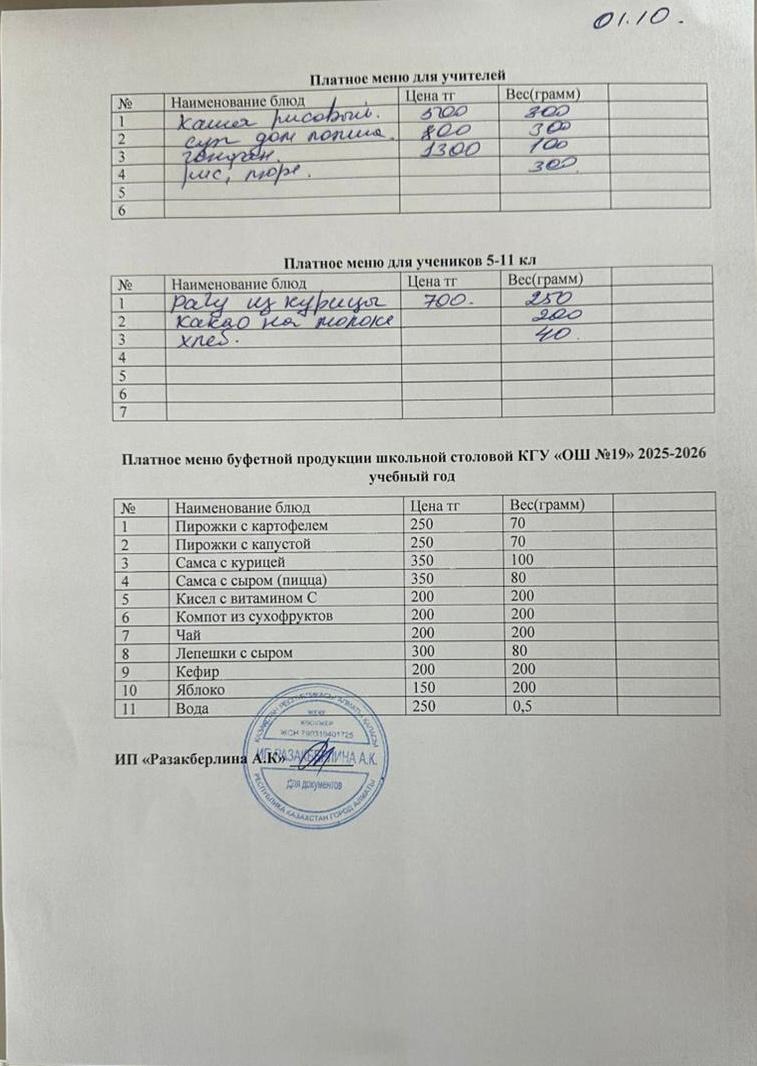 01.10.
Платное меню для учителей
№ Наименование блюд Цена тг Вес(грамм)
1 Кашая рисовый. 500 300
2 суп дом лапша. 800 300
3 1300 100
4 рис, пюре. 300
5
6
Платное меню для учеников 5-11 кл
№ Наименование блюд Цена тг Вес(грамм)
1 Рагу из курицы 700. 250
2 какао на молоке 200
3 хлеб. 40.
4
5
6
7
Платное меню буфетной продукции школьной столовой КГУ «ОШ №19» 2025-2026
учебный год
№ Наименование блюд Цена тг Вес(грамм)
1 Пирожки с картофелем 250 70
2 Пирожки с капустой 250 70
3 Самса с курицей 350 100
4 Самса с сыром (пицца) 350 80
5 Кисел с витамином С 200 200
6 Компот из сухофруктов 200 200
7 Чай 200 200
8 Лепешки с сыром 300 80
9 Кефир 200 200
10 Яблоко 150 200
11 Вода 250 0,5
ИП «Разакберлина А.К»
ИП РАЗАКБЕРЛИНА А.К.
Для документов
РЕСПУБЛИКА КАЗАХСТАН ГОРОД АЛМАТЫ